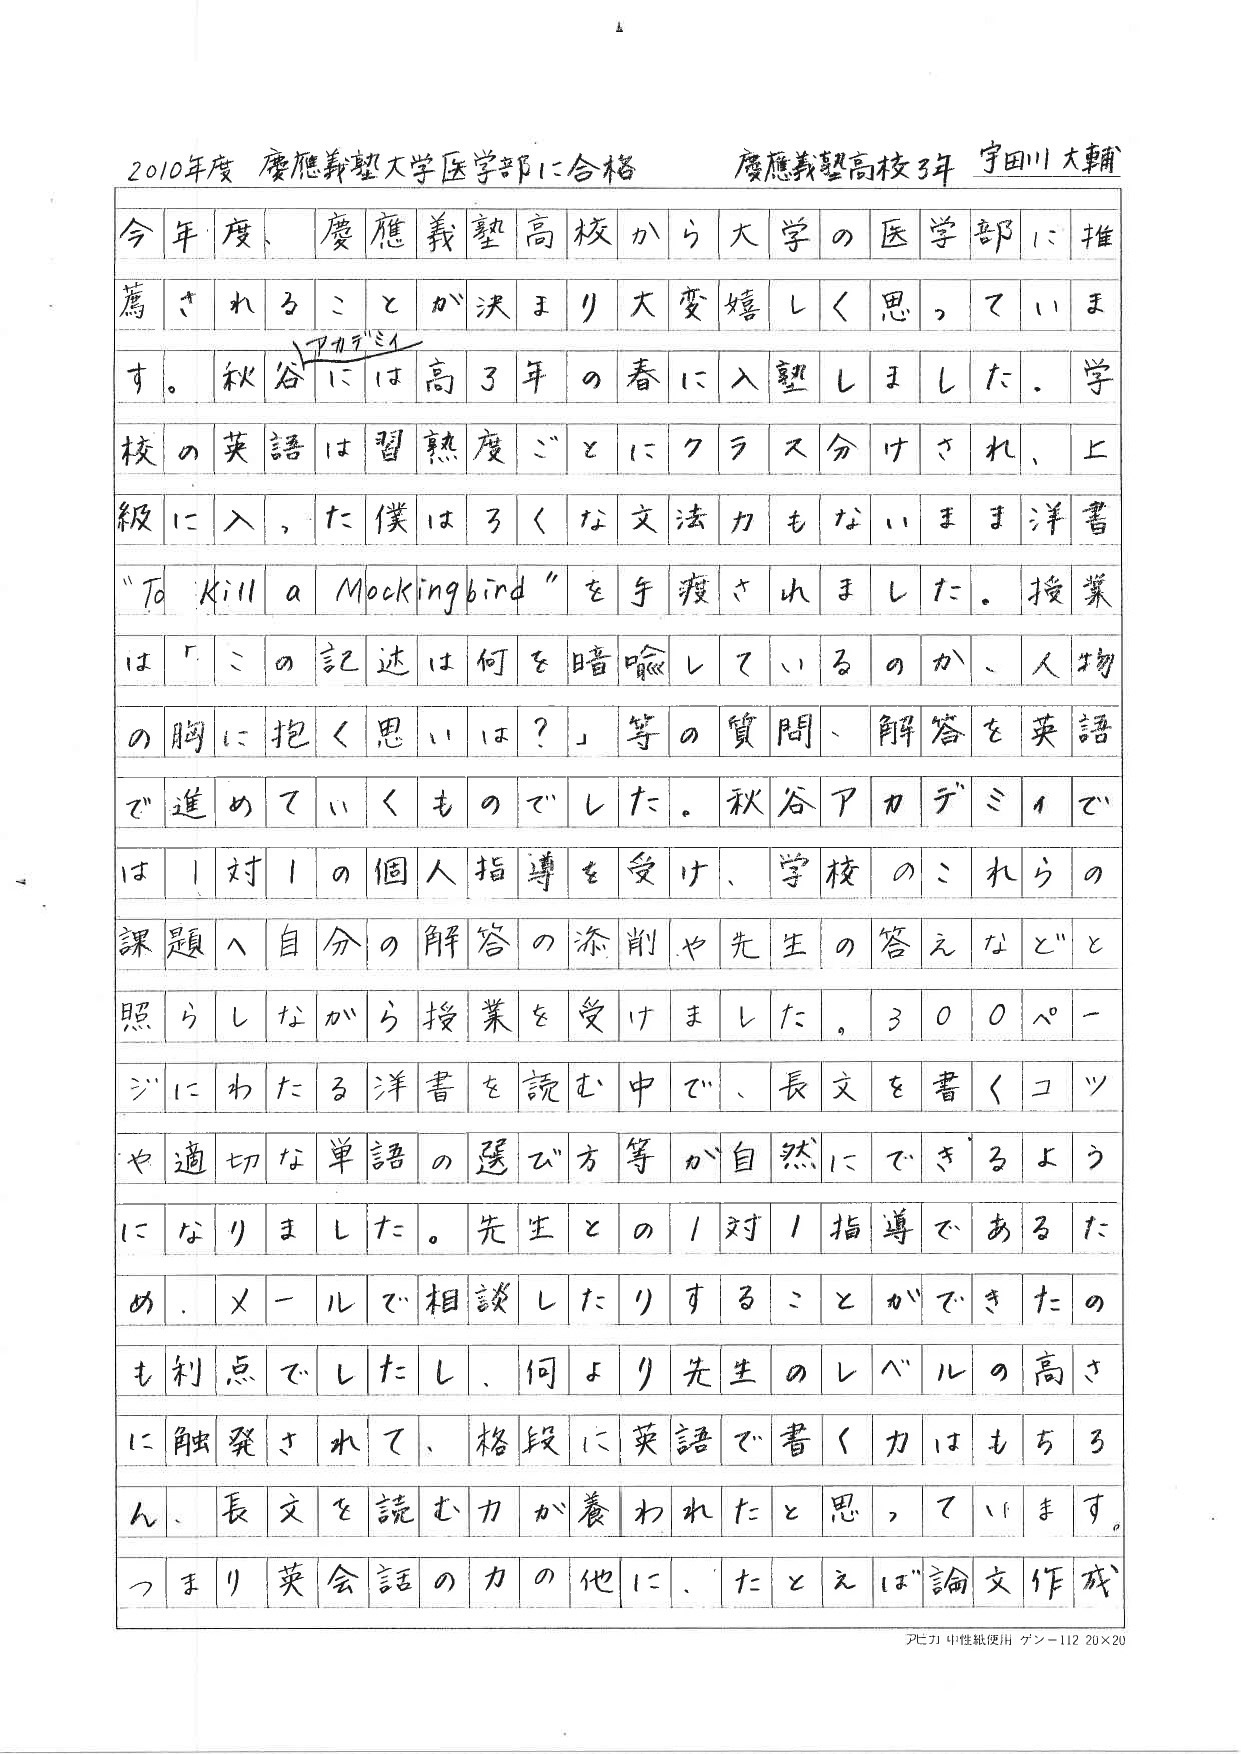 2010年度 慶應義塾大学医学部に合格 慶應義塾高校3年 宇田川 大輔
今年度、慶應義塾高校から大学の医学部に推
薦されることが決まり大変嬉しく思っていま
アカデミィ
す。秋谷には高3年の春に入塾しました。学
校の英語は習熟度ごとにクラス分けされ、上
級に入った僕はろくな文法力もないまま洋書
"To Kill a Mockingbird"を手渡されました。授業
は「この記述は何を暗喩しているのか、人物
の胸に抱く思いは?」等の質問、解答を英語
で進めていくものでした。秋谷アカデミィで
は1対1の個人指導を受け、学校のこれらの
課題へ自分の解答の添削や先生の答えなどと
照らしながら授業を受けました。300ペー
ジにわたる洋書を読む中で、長文を書くコツ
や適切な単語の選び方等が自然にできるよう
になりました。先生との1対1指導であるた
め、メールで相談したりすることができたの
も利点でしたし、何より先生のレベルの高さ
に触発されて、格段に英語で書く力はもちろ
ん、長文を読む力が養われたと思っています。
つまり英会話の力の他に、たとえば論文作成
アピカ 中性紙使用 ゲンー112 20×20